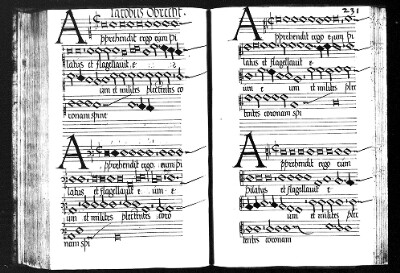 Jacobus Obrecht.
Apprehendit ergo eum pi
latus et flagellavit. e
um et milites plectentes co
ronam spine
Apprehendit ergo eum pi
latus et flagellavit e um e
um et milites plectentes coro
nam spi
231
Apprehendit ergo eum pi
latus et flagellavit e
um e um et milites plec
tentes coronam spi
Apprehendit ergo eum
pilatus et flagellavit e
um et milites plec
tentes coronam